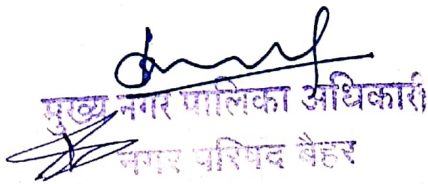 मुख्य नगर पालिका अधिकारी
नगर परिषद बैहर